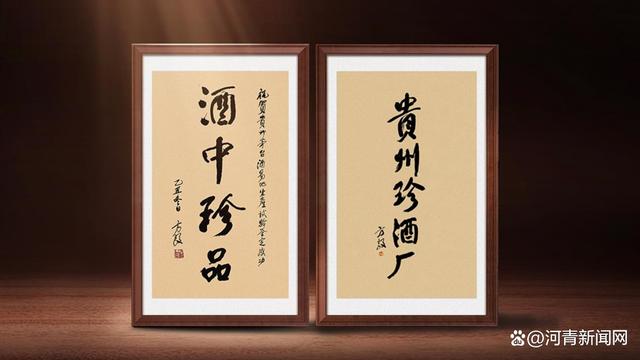 祝賀貴州茅台酒易地生産試驗鉴定成功
酒中珍品
乙丑冬日
方毅
貴州珍酒厂
方毅
河青新闻网